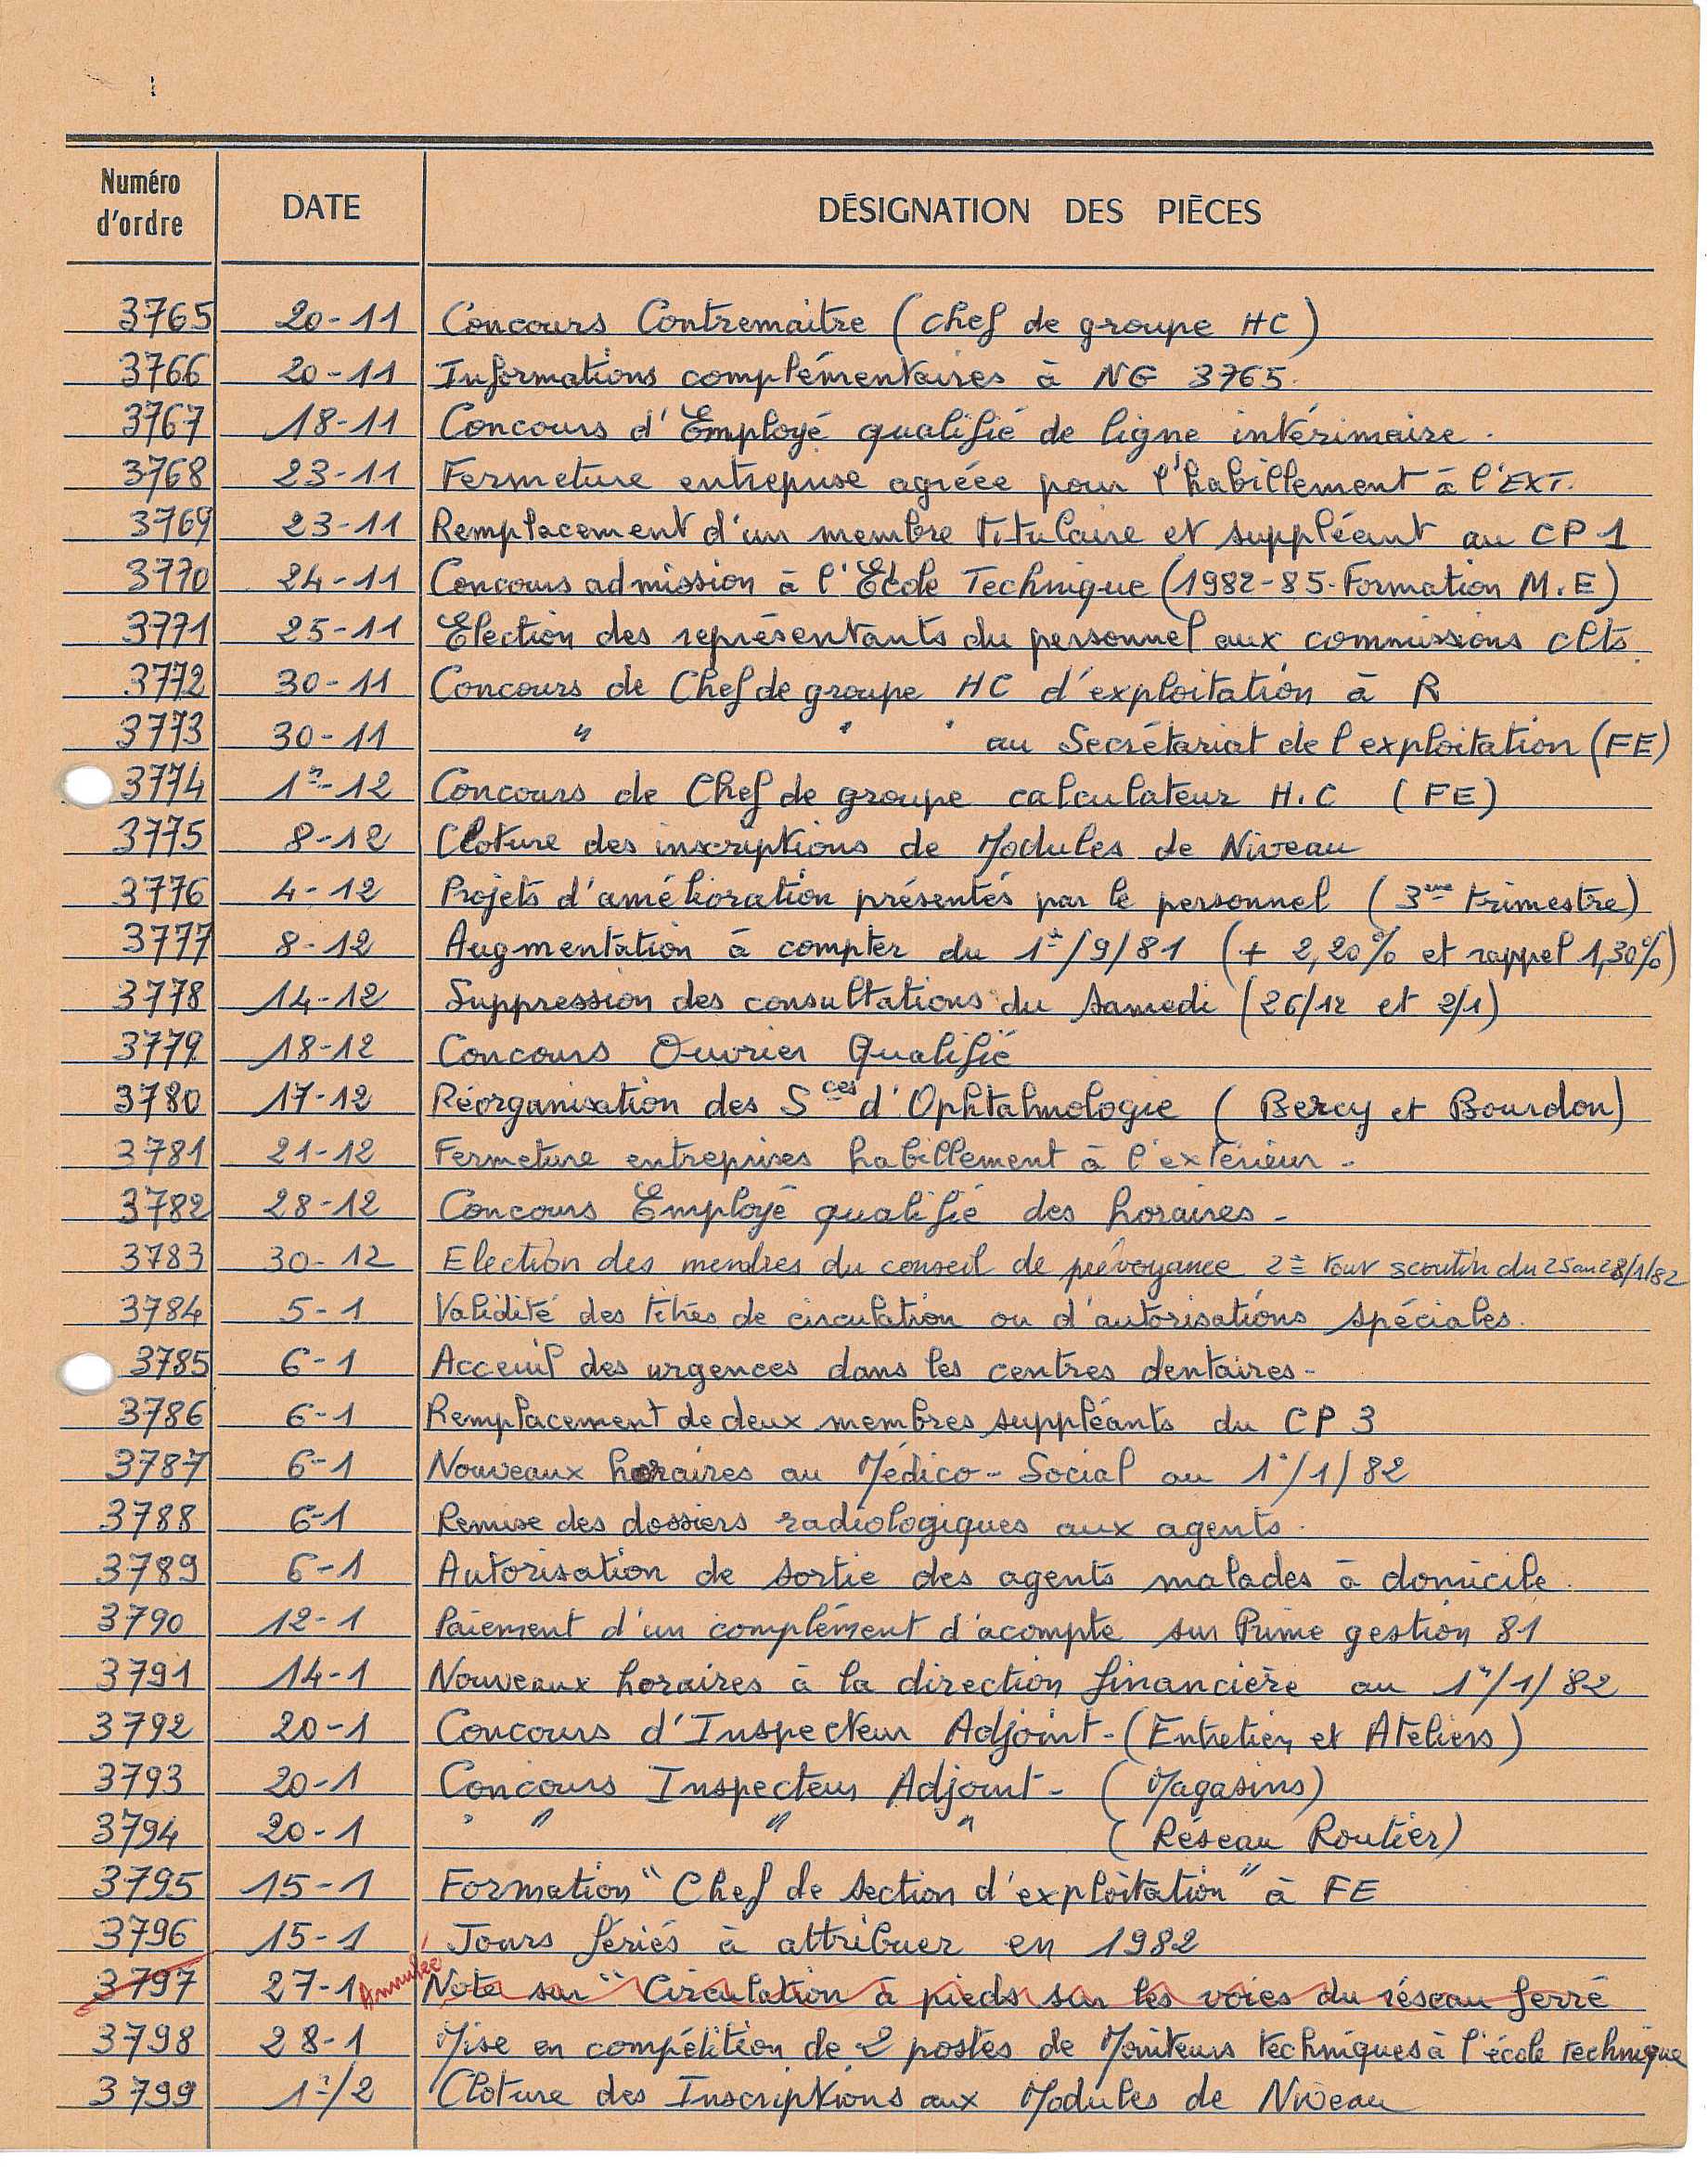 Numéro d'ordre DATE DÉSIGNATION DES PIÈCES
3765 20-11 Concours Contremaitre (chef de groupe HC)
3766 20-11 Informations complémentaires à NG 3765.
3767 18-11 Concours d'Employé qualifié de ligne intérimaire.
3768 23-11 Fermeture entreprise agréée pour l'habillement à l'EXT.
3769 23-11 Remplacement d'un membre titulaire et suppléant au CP 1
3770 24-11 Concours admission à l'Ecole Technique (1982-85-Formation M.E)
3771 25-11 Election des représentants du personnel aux commissions clts.
3772 30-11 Concours de Chef de groupe HC d'exploitation à R
3773 30-11 " " " au Secrétariat de l'exploitation (FE)
3774 1er-12 Concours de Chef de groupe calculateur H.C (FE)
3775 8-12 Cloture des inscriptions de Modules de Niveau
3776 4-12 Projets d'amélioration présentés par le personnel (3eme trimestre)
3777 8-12 Augmentation à compter du 1er/9/81 (+ 2,20% et rappel 1,30%)
3778 14-12 Suppression des consultations du samedi (26/12 et 2/1)
3779 18-12 Concours Ouvrier Qualifié
3780 17-12 Réorganisation des Sces d'Ophtalmologie (Bercy et Bourdon)
3781 21-12 Fermeture entreprises habillement à l'extérieur-
3782 28-12 Concours Employé qualifié des horaires-
3783 30-12 Election des membres du conseil de prévoyance 2e tour scrutin du 25 au 28/1/82
3784 5-1 Validité des titres de circulation ou d'autorisations spéciales.
3785 6-1 Acceuil des urgences dans les centres dentaires-
3786 6-1 Remplacement de deux membres suppléants du CP 3
3787 6-1 Nouveaux horaires au Médico-Social au 1er/1/82
3788 6-1 Remise des dossiers radiologiques aux agents.
3789 6-1 Autorisation de sortie des agents malades à domicile.
3790 12-1 Paiement d'un complément d'acompte sur Prime gestion 81
3791 14-1 Nouveaux horaires à la direction financière au 1er/1/82
3792 20-1 Concours d'Inspecteur Adjoint-(Entretien et Ateliers)
3793 20-1 Concours Inspecteur Adjoint- (Magasins)
3794 20-1 " " " " (Réseau Routier)
3795 15-1 Formation "Chef de section d'exploitation" à FE
3796 15-1 Jours fériés à attribuer en 1982
3797 27-1 Annulée Note sur "Circulation à pieds sur les voies du réseau ferré
3798 28-1 Mise en compétition de 2 postes de Moniteurs techniques à l'école technique
3799 1er/2 Cloture des Inscriptions aux Modules de Niveau